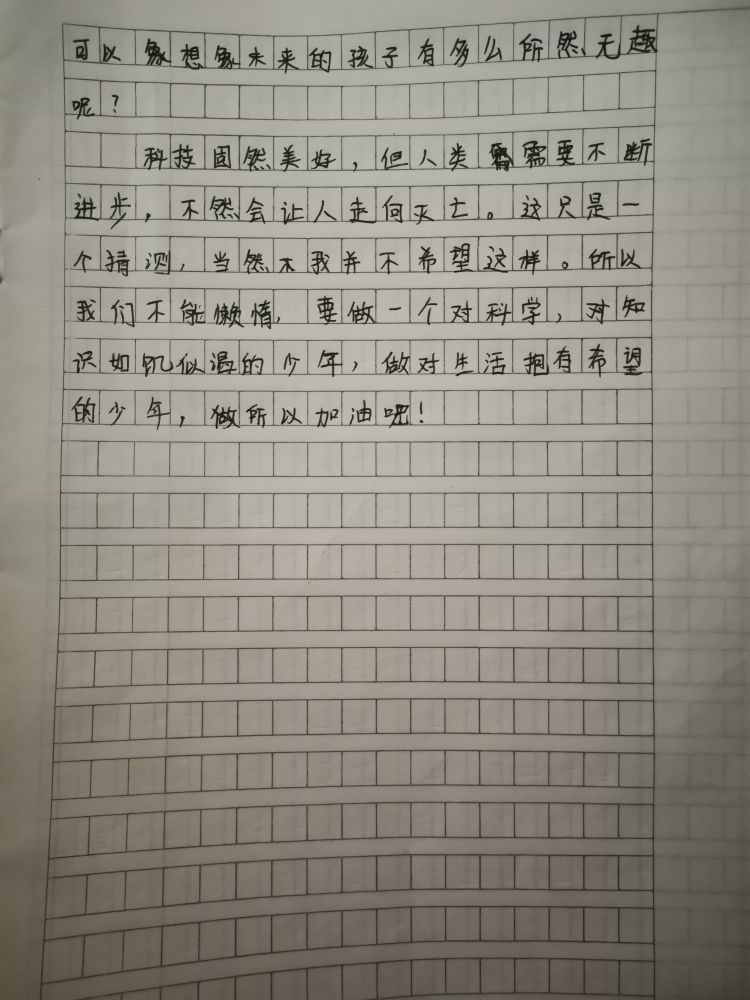 可以象想象未来的孩子有多么所然无趣
呢？
科技固然美好，但人类需要不断
进步，不然会让人走向灭亡。这只是一
个猜测，当然木我并不希望这样。所以
我们不能懒惰，要做一个对科学，对知
识如饥似渴的少年，做对生活拥有希望
的少年，做所以加油吧！